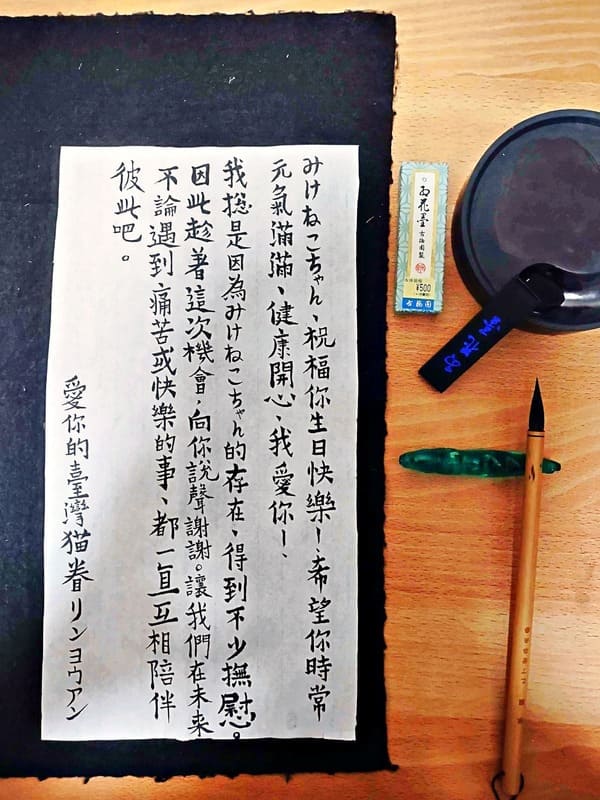 みけねこちゃん、祝福你生日快樂！、希望你時常
元氣滿滿、健康開心、我愛你！、
我總是因為みけねこちゃん的存在、得到不少撫慰。
因此趁著這次機會，向你說聲謝謝。讓我們在未來
不論遇到痛苦或快樂的事、都一直互相陪伴
彼此吧。
愛你的臺灣猫眷リンヨウアン
紅花墨
古梅園製
¥500
古梅園